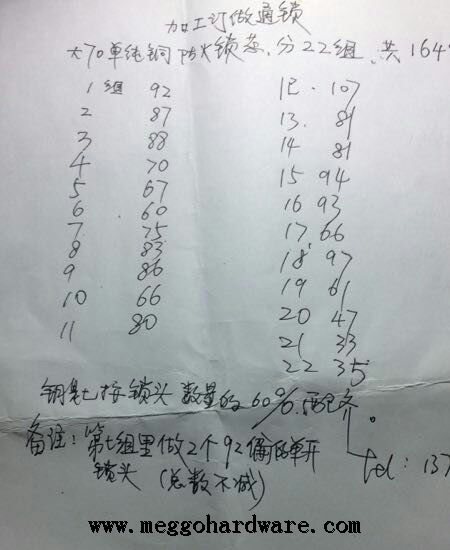 加工订做通锁
大70单纯铜防火锁芯、分22组、共164
1组 92
2 87
3 88
4 70
5 67
6 60
7 75
8 83
9 86
10 66
11 80
12. 107
13. 81
14 81
15 94
16 93
17 66
18 97
19 61
20 47
21 33
22 35
钥匙按锁头数量的60%.配备。
tel: 137
备注:第七组里做2个92偏的单开
锁头 (总数不减)
www.meggohardware.com